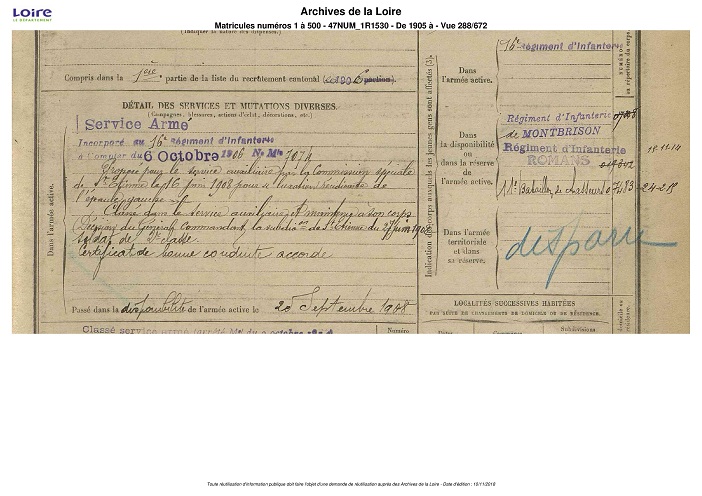 Loire
LE DÉPARTEMENT
Archives de la Loire
Matricules numéros 1 à 500 - 47NUM_1R1530 - De 1905 à - Vue 288/672
(Indiquer la nature des dispenses.)
Compris dans la 1ère partie de la liste du recrutement cantonal
DÉTAIL DES SERVICES ET MUTATIONS DIVERSES.
(Campagnes, blessures, actions d'éclat, décorations, etc.)
Service Armé
Incorporé au 16e Régiment d'Infanterie
à compter du 6 Octobre 1906 No Mle 7074
Proposé pour le service auxiliaire par la Commission spéciale
de St Etienne le 16 juin 1908 pour
l'épaule gauche
Classé dans le service auxiliaire et maintenu à son corps
Décision du Général Commandant la subdion de St Etienne du 27 juin 1908
Soldat de 2e classe
Certificat de bonne conduite accordé
Passé dans la disponibilité de l'armée active le 20 Septembre 1908
Dans l'armée active.
Numéro
Indication des corps auxquels les jeunes gens sont affectés (3).
Dans
l'armée active.
16e Régiment d'Infanterie
NUMÉROS
au répertoire du corps.
Dans
la disponibilité
ou
dans la réserve
de
l'armée active.
Régiment d'Infanterie
de MONTBRISON
Régiment d'Infanterie
ROMANS
11e Bataillon de chasseurs 07483
24-2-15
Dans l'armée
territoriale
et dans
sa réserve.
disparu
LOCALITÉS SUCCESSIVES HABITÉES
PAR SUITE DE CHANGEMENTS DE DOMICILE OU DE RÉSIDENCE.
Dates.
Communes.
Subdivisions
Toute réutilisation d'information publique doit faire l'objet d'une demande de réutilisation auprès des Archives de la Loire - Date d'édition : 10/11/2018